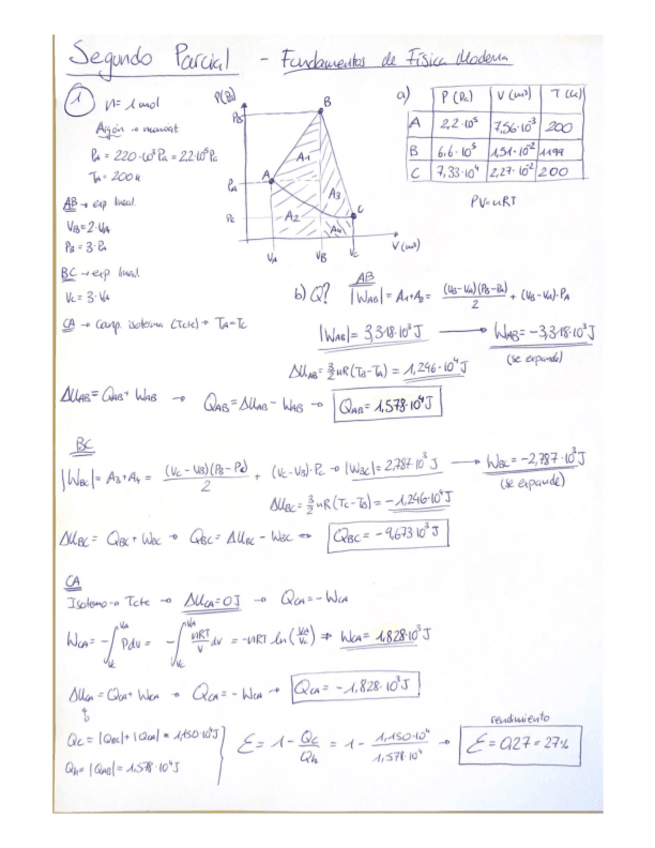 Segundo Parcial - Fundamentos de Física Moderna
1
n = 1 mol
Argón → monoat
PA = 220·10³ Pa = 2,2·10⁵ Pa
TA = 200 K
AB → exp lineal
VB = 2·VA
PB = 3·PA
BC → exp lineal
VC = 3·VA
CA → comp. isoterma (Tcte) → TA = TC
P(Pa)
PB
PA
PC
A
B
C
A1
A2
A3
A4
VA VB VC V(m³)
a)
P (Pa) V (m³) T (K)
A 2,2·10⁵ 7,56·10⁻³ 200
B 6,6·10⁵ 1,51·10⁻² 1199
C 7,33·10⁴ 2,27·10⁻² 200
PV = nRT
b) Q? AB
|WAB| = A1 + A2 = (VB - VA)(PB - PA) / 2 + (VB - VA)·PA
|WAB| = 3,318·10³ J → WAB = -3,318·10³ J
(se expande)
ΔUAB = 3/2 nR (TB - TA) = 1,246·10⁴ J
ΔUAB = QAB + WAB → QAB = ΔUAB - WAB → QAB = 1,578·10⁴ J
BC
|WBC| = A3 + A4 = (VC - VB)(PB - PC) / 2 + (VC - VB)·PC → |WBC| = 2,787·10³ J → WBC = -2,787·10³ J
(se expande)
ΔUBC = 3/2 nR (TC - TB) = -1,246·10⁴ J
ΔUBC = QBC + WBC → QBC = ΔUBC - WBC → QBC = -9,673·10³ J
CA
Isotermo → Tcte → ΔUCA = 0 J → QCA = -WCA
WCA = -∫ PdV = -∫ nRT/V dV = -nRT ln (VA/VC) ⇒ WCA = 1,828·10³ J
ΔUCA = QCA + WCA → QCA = -WCA → QCA = -1,828·10³ J
QC = |QBC| + |QCA| = 1,150·10⁴ J
Qh = |QAB| = 1,578·10⁴ J
ε = 1 - QC/Qh = 1 - 1,150·10⁴ / 1,578·10⁴ →
rendimiento
ε = 0,27 = 27%